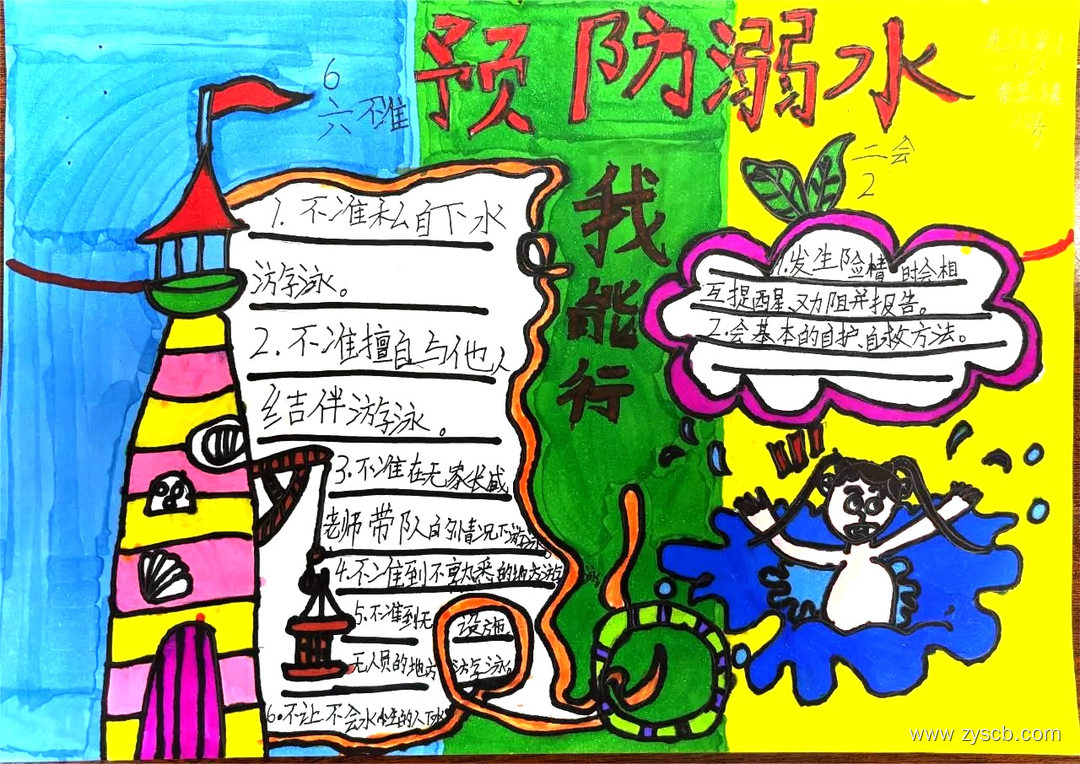 预防溺水
我能行
6
六不准
1. 不准私自下水
游学泳。
2. 不准擅自与他人
结伴游泳。
3. 不准在无家长或
老师带队的情况下游泳。
4. 不准到不熟悉的地方游泳
5. 不准到无 设施
无人员的地方 游学泳
6. 不让不会水性的人下水
二会
2
1.发生险情时会相
互提醒、劝阻并报告。
2.会基本的自护、自救方法。
www.zyscb.com